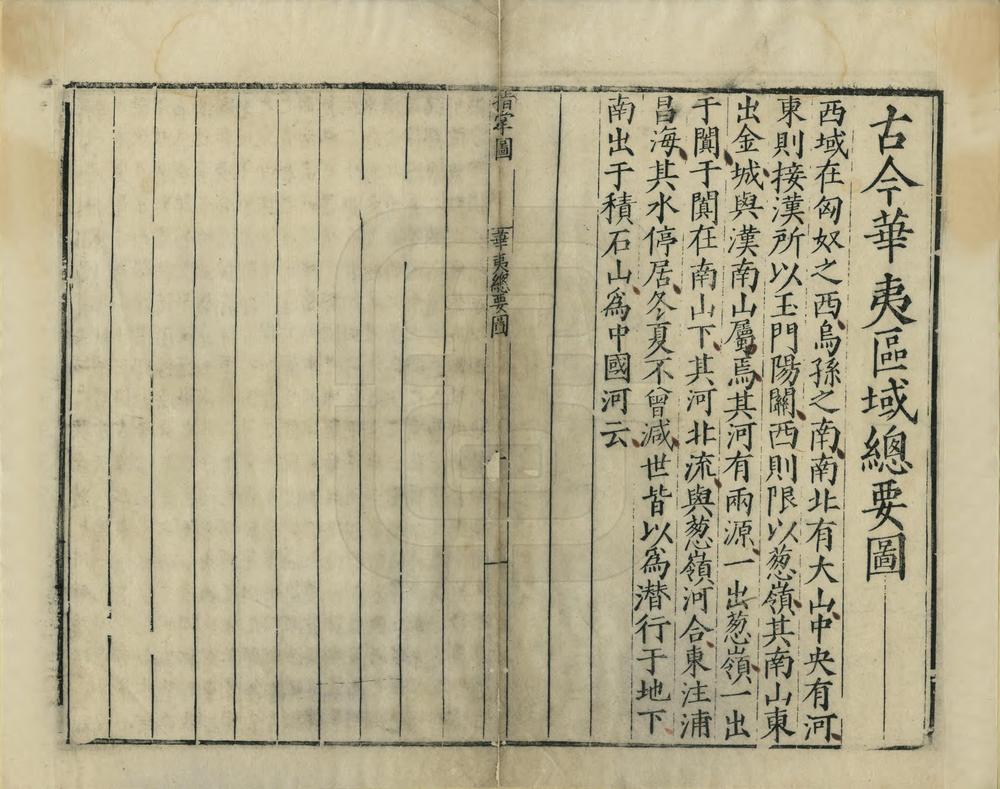 古今華夷區域總要圖
西域在匈奴之西烏孫之南南北有大山中央有河
東則接漢所以玉門陽關西則限以葱嶺其南山東
出金城與漢南山屬焉其河有兩源一出葱嶺一出
于闐于闐在南山下其河北流與葱嶺河合東注浦
昌海其水停居冬夏不曾減世皆以為潜行于地下
南出于積石山為中國河云
指掌圖 華夷總要圖 一